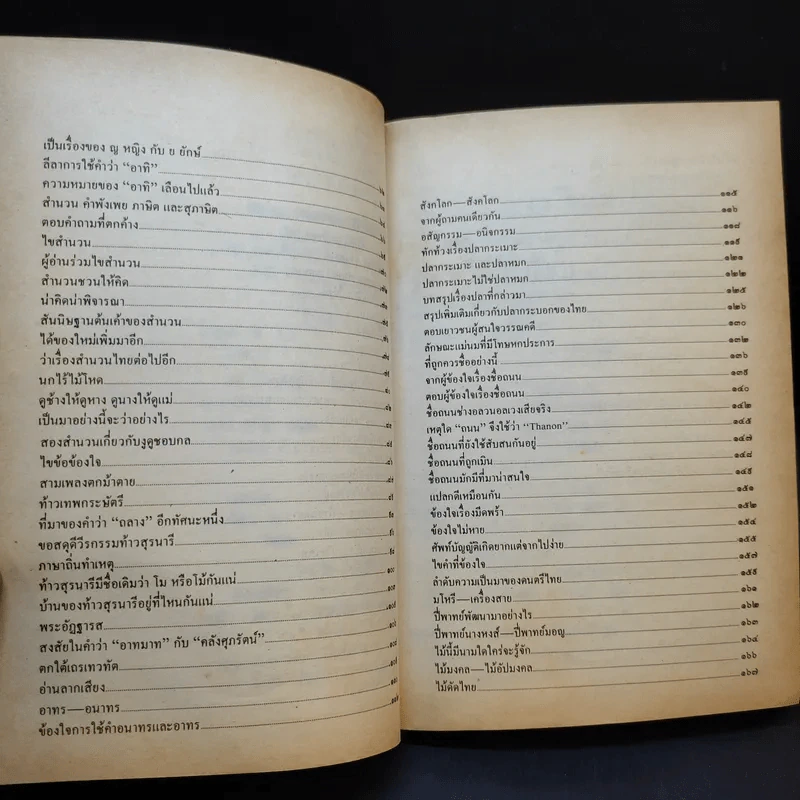 เป็นเรื่องของ ญ หญิง กับ ย ยักษ์
ลีลาการใช้คำว่า “อาทิ”
ความหมายของ “อาทิ” เลือนไปแล้ว
สำนวน คำพังเพย ภาษิต และสุภาษิต
ตอบคำถามที่ตกค้าง
ไขสำนวน
ผู้อ่านร่วมไขสำนวน
สำนวนชวนให้คิด
น่าคิดน่าพิจารณา
สันนิษฐานต้นเค้าของสำนวน
ได้ของใหม่เพิ่มมาอีก
ว่าเรื่องสำนวนไทยต่อไปอีก
นกไร้ไม้โหด
ดูช้างให้ดูหาง ดูนางให้ดูแม่
เป็นมาอย่างนี้จะว่าอย่างไร
สองสำนวนเกี่ยวกับงูดูชอบกล
ไขข้อข้องใจ
สามเพลงตกม้าตาย
ท้าวเทพกระษัตรี
ที่มาของคำว่า “ถลาง” อีกทัศนะหนึ่ง
ขอสดุดีวีรกรรมท้าวสุรนารี
ภาษาถิ่นทำเหตุ
ท้าวสุรนารีมีชื่อเดิมว่า โม หรือโม้กันแน่
บ้านของท้าวสุรนารีอยู่ที่ไหนกันแน่
พระอัฏฐารส
สงสัยในคำว่า “อาทมาท” กับ “คลังศุภรัตน์”
ตกใต้เถรเทวทัต
อ่านลากเสียง
อาทร—อนาทร
ข้องใจการใช้คำอนาทรและอาทร
สังคโลก—สังคโลก ๑๑๕
จากผู้ถามคนเดียวกัน ๑๑๖
อสัญกรรม—อนิจกรรม ๑๑๘
ทักท้วงเรื่องปลากระเมาะ ๑๑๙
ปลากระเมาะ และปลาหมก ๑๒๑
ปลากระเมาะไม่ใช่ปลาหมก ๑๒๒
บทสรุปเรื่องปลาที่กล่าวมา ๑๒๕
สรุปเพิ่มเติมเกี่ยวกับปลากระบอกของไทย ๑๒๖
ตอบเยาวชนผู้สนใจวรรณคดี ๑๓๐
ลักษณะแม่นมที่มีโทษหกประการ ๑๓๒
ที่ถูกควรชื่ออย่างนี้ ๑๓๖
จากผู้ข้องใจเรื่องชื่อถนน ๑๓๙
ตอบผู้ข้องใจเรื่องชื่อถนน ๑๔๐
ชื่อถนนช่างอลวนอลเวงเสียจริง ๑๔๒
เหตุใด “ถนน” จึงใช้ว่า “Thanon” ๑๔๕
ชื่อถนนที่ยังใช้สับสนกันอยู่ ๑๔๗
ชื่อถนนที่ถูกเมิน ๑๔๘
ชื่อถนนมักมีที่มาน่าสนใจ ๑๔๙
แปลกดีเหมือนกัน ๑๕๑
ข้องใจเรื่องมีดพร้า ๑๕๒
ข้องใจไม่หาย ๑๕๔
ศัพท์บัญญัติเกิดยากแต่จากไปง่าย ๑๕๕
ไขคำที่ข้องใจ ๑๕๗
ลำดับความเป็นมาของดนตรีไทย ๑๕๙
มโหรี—เครื่องสาย ๑๖๑
ปี่พาทย์พัฒนามาอย่างไร ๑๖๒
ปี่พาทย์นางหงส์—ปี่พาทย์มอญ ๑๖๓
ไม้นี้มีนามใดใคร่จะรู้จัก ๑๖๔
ไม้มงคล—ไม้อัปมงคล ๑๖๖
ไม้ดัดไทย ๑๖๗